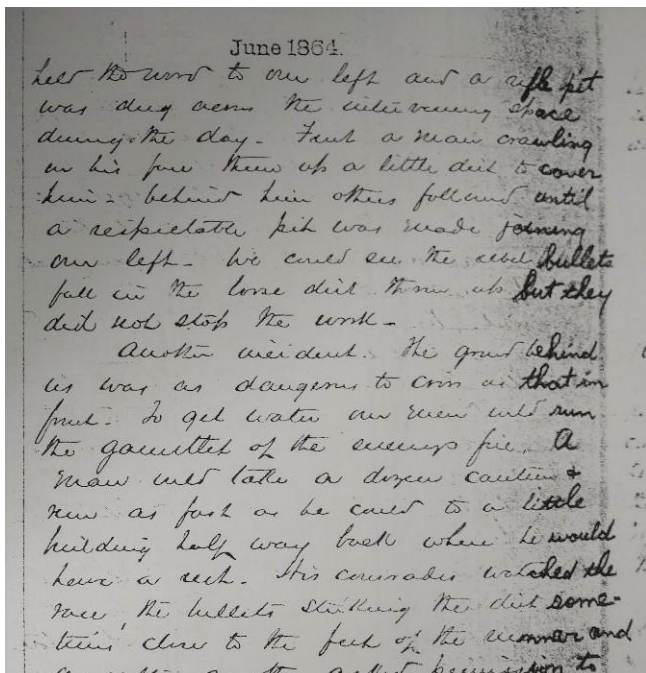 June 1864.
held the wood to our left and a rifle pit
was dug across the intervening space
during the day. First a man crawling
on his face threw up a little dirt to cover
him - behind him others followed until
a respectable pit was made joining
our left - We could see the rebel bullets
fall in the loose dirt thrown up but they
did not stop the work -
Another incident. The ground behind
us was as dangerous to cross as that in
front. To get water our men would run
the gauntlet of the enemys fire. A
man would take a dozen canteens &
run as fast as he could to a little
building half way back where he would
have a rest. His comrades watched the
race, the bullets striking the dirt some-
times close to the feet of the runner and
asked permission to